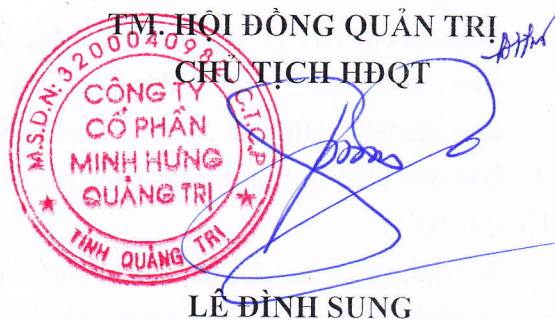 TM. HỘI ĐỒNG QUẢN TRỊ
CHỦ TỊCH HĐQT
M.S.D.N: 320004098 C.T.C.P
CÔNG TY
CỔ PHẦN
MINH HƯNG
QUẢNG TRỊ
TỈNH QUẢNG TRỊ
LÊ ĐÌNH SUNG